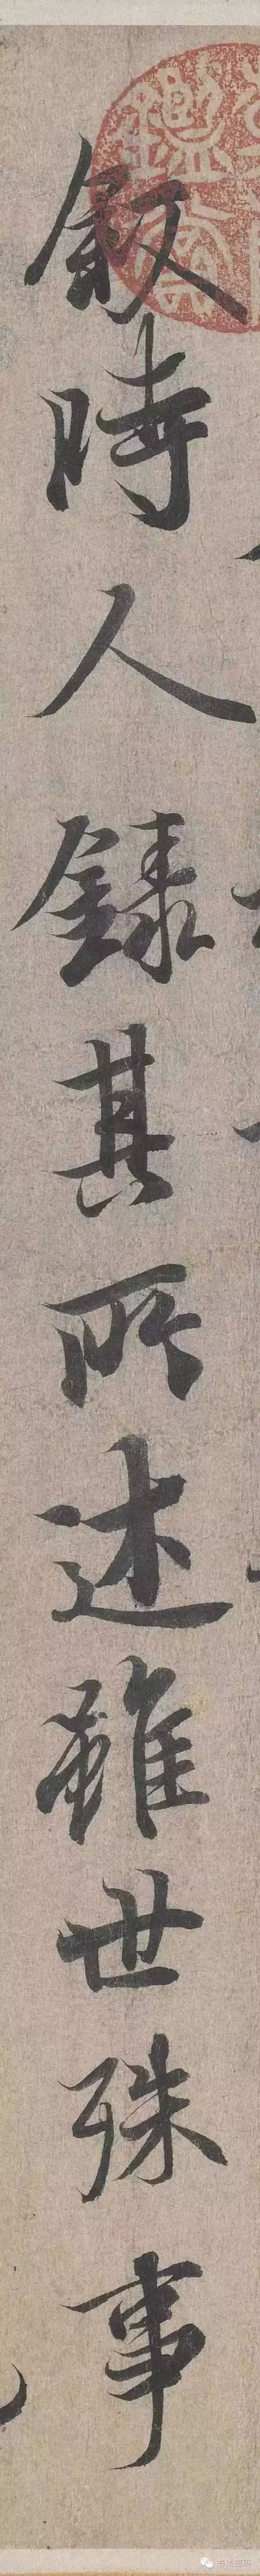 敘時人錄其所述雖世殊事